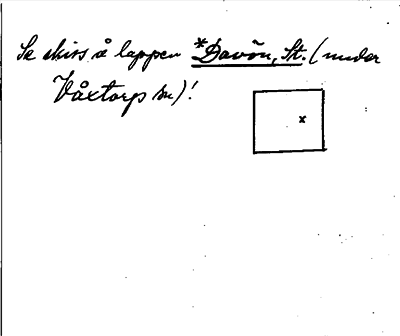 Se skiss å lappen *Davön, St. (under
Våxtorp sn)!
x